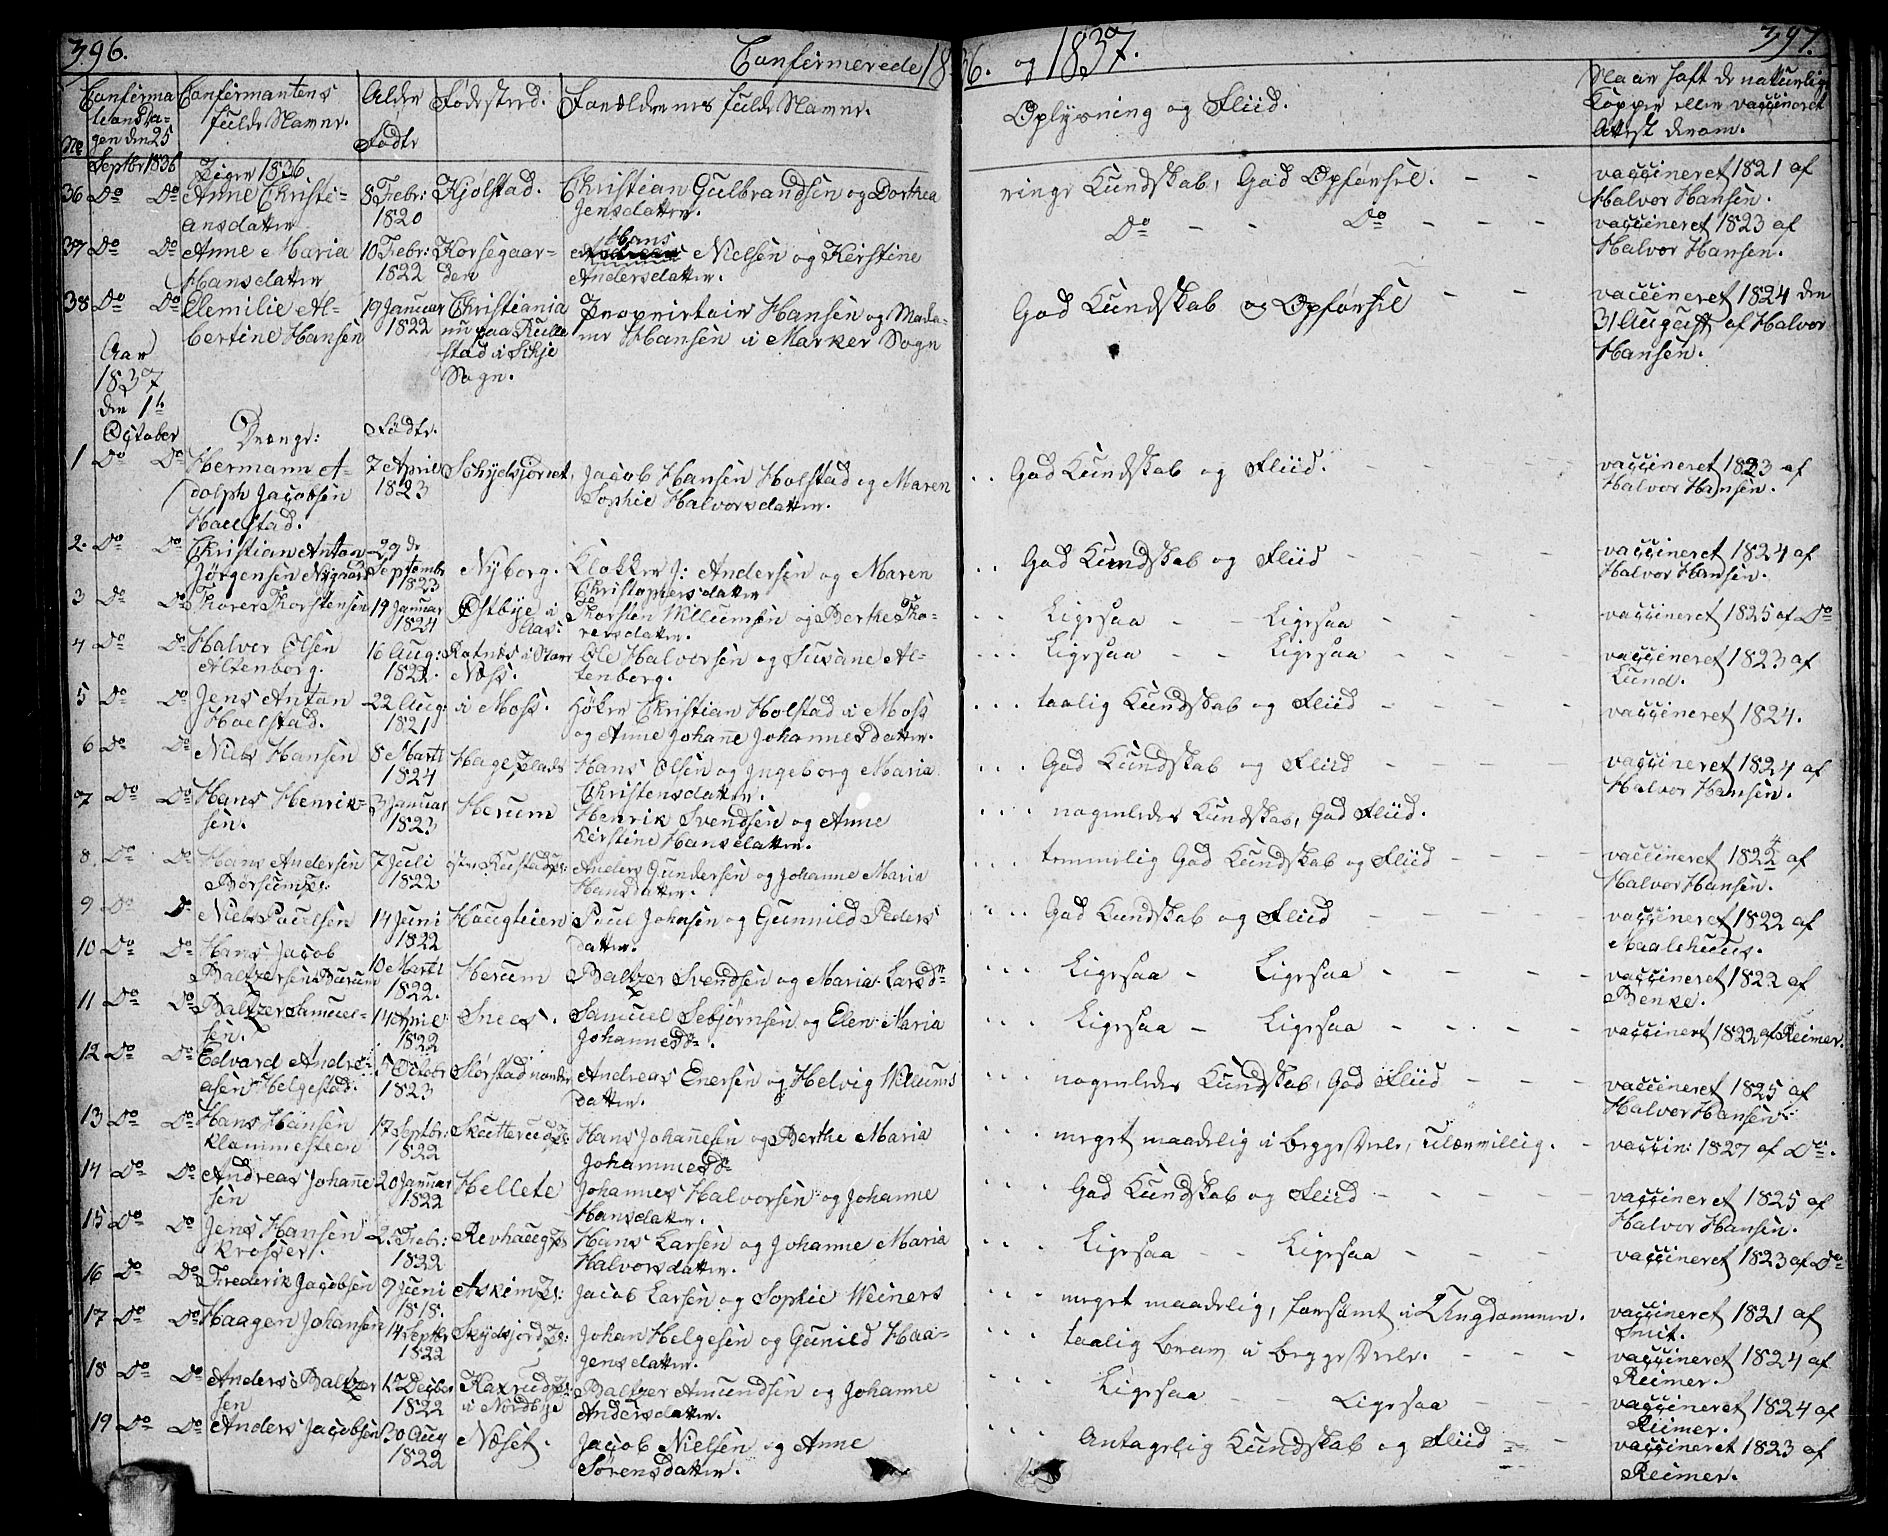 396.
Confirmerede 1836. og 1837.
397.
No
Confirma
tions Da-
gen den 25
Septbr 1836
Confirmantens
fulde Navne.
Alder
Fødte
Fødsted.
Forældrenes fulde Navne.
Oplysning og Fliid.
Naar haft de naturlige
Kopper eller vaccineret
Attest derom.
Piger 1836
36 Do Do Anne Christi-
ansdatter
8 Febr:
1820
Kjølstad.
Christian Gulbrandsen og Dorthea
Jensdatter.
ringe Kundskab, God Opførsel. - -
vaccineret 1821 af
Halvor Hansen.
37 Do Do Anne Maria
Hansdatter
10 Febr:
1822
Korsegaar-
den
Hans
Nielsen og Kirstine
Andersdatter.
Do - - Do - - -
vaccineret 1823 af
Halvor Hansen.
38 Do Do Elemilie Al-
bertine Hansen
19 Januar
1822
Christiania
nu paa Kulle
stad i Sogn.
Proprietair Hansen og Mada-
me Hansen i Marker Sogn
God Kundskab og Opførsel - -
vaccineret 1824 den
31 August af Halvor
Hansen.
Aar
1837
den 1te
October
Drenge:
Fødte.
1 Do Do Hermann A-
dolph Jacobsen
Hoelstad.
7 April
1823
Schydsjordet,
Jacob Hansen Holstad og Maren
Sophie Halvorsdatter.
God Kundskab og Fliid.
vaccineret 1823 af
Halvor Hansen.
2. Do Do Christian Anton
Jörgensen Nygaard
29de
Septembr
1823
Nyborg.
Klokker J: Andersen og Maren
Christophersdatter
God Kundskab og Fliid
vaccineret 1824 af
Halvor Hansen.
3 Do Do Thorer Thorstensen
19 Januar
1824
Østbye i
Aas.
Thorsten Willumsen og Berthe Tho-
rersdatter.
Ligesaa - - Ligesaa
vaccineret 1825 af Do
4 Do Do Halvor Olsen
Altenborg.
16 Aug:
1822.
Ratnæs i
Næss.
Ole Halvorsen og Susane Al-
tenborg.
Ligesaa - - Ligesaa
vaccineret 1823 af
Lund.
5 Do Do Jens Anton
Hoelstad.
22 Aug
1821
i Moss.
Høker Christian Holstad i Moss
og Anne Johanne Johannesdatter.
taalig Kundskab og Fliid
vaccineret 1824.
6 Do Do Niels Hansen
8 Marti
1824
Hage Plads
Hans Olsen og Ingeborg Maria
Christensdatter.
God Kundskab og Fliid
vaccineret 1824 af
Halvor Hansen.
7 Do Do Hans Henrik-
sen.
3 Januar
1823
Herum
Henrik Svendsen og Anne
Kirstine Hansdatter.
nogenledes Kundskab, God Fliid.
8. Do Do Hans Andersen
Børsum
7 Juli
1822
Anders Gundersen og Johanne Maria
Hansdatter.
temmelig God Kundskab og Fliid
vaccineret 1822 af
4
Halvor Hansen.
9 Do Do Niels Paulsen
14 Juni
1822
Haugteien
Paul Johnsen og Gunnild Peders
datter.
God Kundskab og Fliid
vaccineret 1822 af
Maalehuus.
10 Do Do Hans Jacob
Baltzersen Burum
10 Marti
1822.
Herum
Baltzer Svendsen og Maria Larsdtr
Ligesaa - Ligesaa
vaccineret 1822 af
Benke.
11 Do Do Baltzer Samuel-
sen.
14 April
1822
Snees.
Samuel Sebjørnsen og Elen Maria
Johannesdr.
Ligesaa - Ligesaa
vaccinert 1822 af Reimer.
12 Do Do Edvard Andre-
asen Helgestad.
5 Octobr
1823
Slørstad
Andreas Enersen og Helvig Willums
datter.
nogenledes Kundskab, God Fliid
vaccineret 1825 af
Halvor Hansen.
13 Do Do Hans Hansen
Klommesteen
17 Septbr:
1822
Skutterud
Hans Johanesen og Berthe Maria
Johannesdr
meget maadelig i begge Dele, ulærvillig.
vaccin: 1827 af Do.
14 Do Do Andreas Johane
sen
20 Januar
1822
Hellete
Johannes Halvorsen og Johanne
Hansdatter.
God Kundskab og Fliid
vaccineret 1825 af
Halvor Hansen.
15 Do Do Jens Hansen
Krosser.
2. Febr:
1822
Revhaug
Hans Larsen og Johanne Maria
Halvorsdatter.
Ligesaa - - Ligesaa
vaccineret 1823 af Do
16 Do Do Frederik Jacobsen
9 Juni
1818.
Askim
Jacob Larsen og Sophie Weiners
meget maadelig, forsømt i Ungdommen.
vaccineret 1821 af
Smit.
17 Do Do Haagen Johansen
14 Septbr
1822
Skydsjord
Johan Helgesen og Gunild Haa-
gensdatter.
taalig brav i begge Dele.
vaccineret 1824 af
Reimer.
18 Do Do Anders Baltzer
sen
15 Decbr
1822
Kaxrud
i Nordbye
Baltzer Amundsen og Johanne
Andersdatter.
Ligesaa - - Ligesaa
vaccineret 1824 af
Reimer.
19 Do Do Anders Jacobsen
30 Aug
1822
Næset.
Jacob Nielsen og Anne
Sörensdatter.
Antagelig Kundskab og Fliid
vaccineret 1823 af
Reimer.